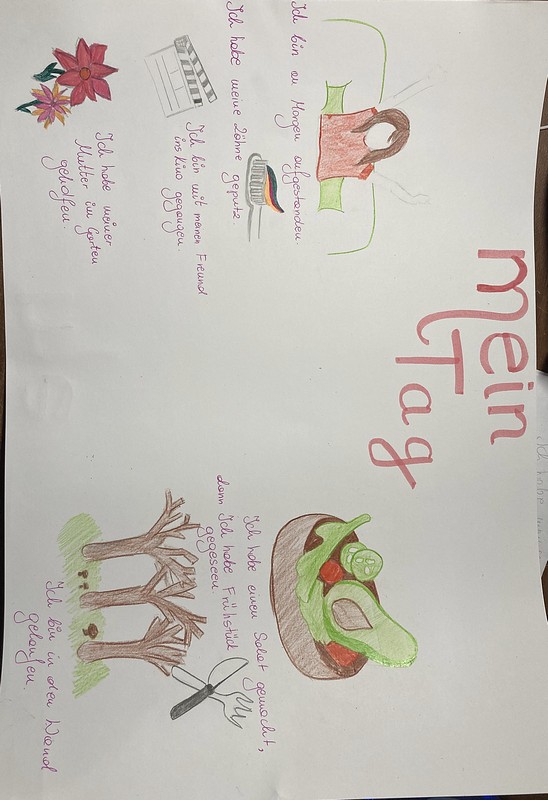 Mein
Tag
Ich bin am Morgen aufgestanden.
Ich habe meine Zähne geputz.
Ich bin mit meinen Freund
ins Kino gegangen.
Ich habe meiner
Mutter im Garten
geholfen.
Ich habe einen Salat gemacht,
dann Ich habe Frühstück
gegeseen.
Ich bin in den
gelaufen.
Ich habe